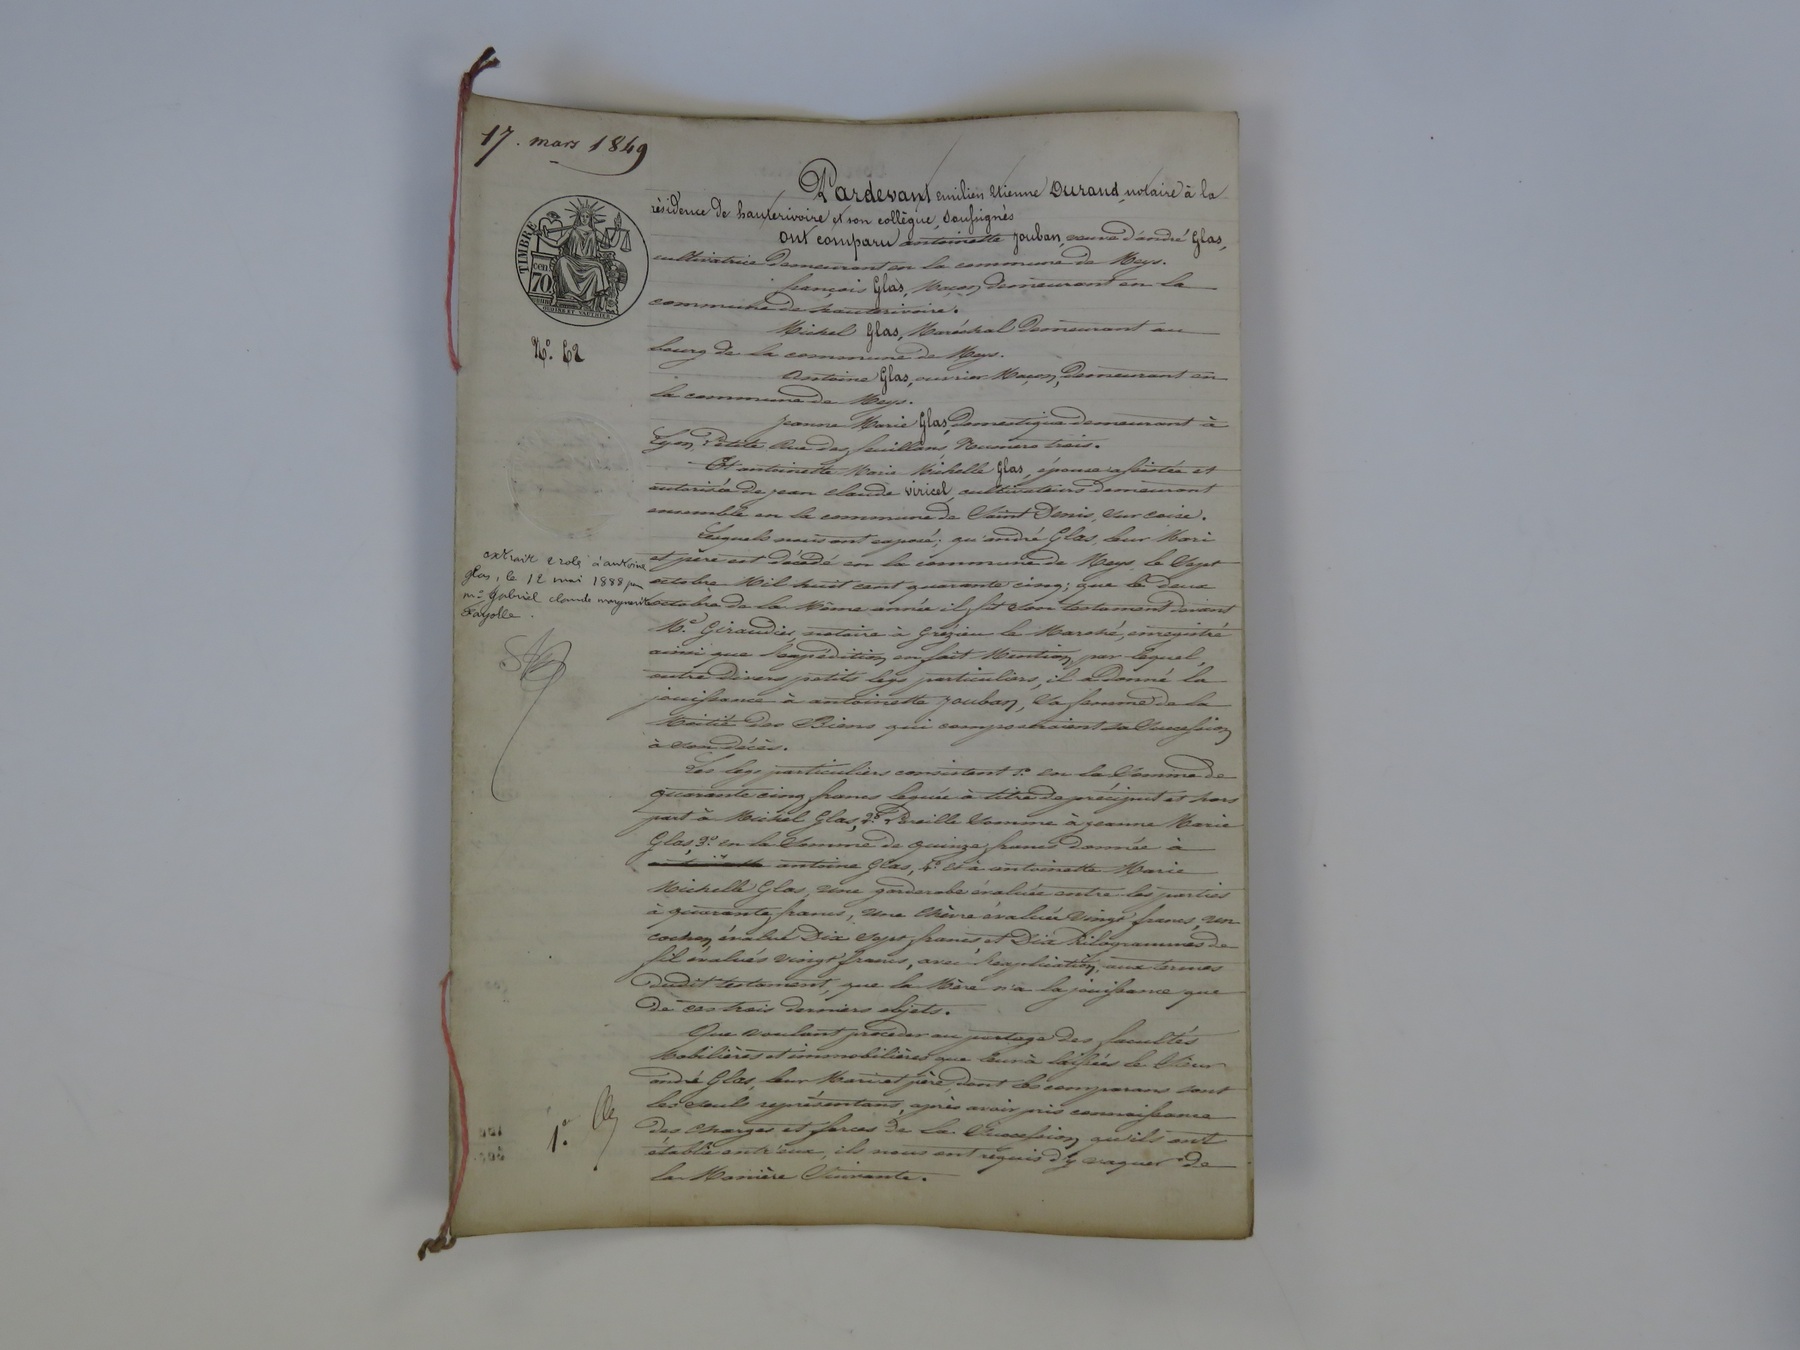 17. mars 1849
Pardevant emilien etienne Durand, notaire à la
résidence de hauterivoire et son collègue, soussignés
TIMBRE
cen
70
Ont comparu antoinette Jouban, veuve d'andré Glas,
cultivatrice demeurant en la commune de Meys.
françois Glas, Maçon demeurant en la
commune de hauterivoire.
Michel Glas, Maréchal demeurant au
bourg de la commune de Meys.
N°. 62
Antoine Glas, ouvrier Maçon, demeurant en
la commune de Meys.
Jeanne Marie Glas, domestique demeurant à
Lyon, Petite Rue des feuillans, Numero trois.
Et antoinette Marie Michelle Glas, épouse assistée et
autorisée de jean claude viricel, cultivateurs demeurant
ensemble en la commune de Saint Denis, sur coise.
Lesquels nous ont exposé; qu'andré Glas, leur Mari
et père est décédé en la commune de Meys, le Sept
octobre Mil huit cent quarante cinq; que le deux
octobre de la Même année il fit son testament devant
extrait 2 role à antoine
glas, le 12 mai 1888 par
me gabriel claude marguerite
Fayolle.
Me. Giraudier, notaire à Grézieu le Marché, enregistré
ainsi que l'expédition en fait Mention, par lequel,
outre divers petits legs particuliers, il a donné la
jouissance à antoinette Jouban, Sa femme de la
Moitié des Biens qui composeraient sa Succession
à son décès.
Les legs particuliers consistent 1°. en la Somme de
quarante cinq francs leguée à titre de préciput et hors
part à Michel Glas, 2°. Pareille Somme à jeanne Marie
Glas, 3°. en la Somme de quinze francs donnée à
antoine Glas, 4°. Et à antoinette Marie
Michelle Glas, une garderobe évaluée entre les parties
à quarante francs, une chèvre évaluée vingt francs, un
cochon évalué Dix Sept francs et Dix kilogrammes de
fil évalués vingt francs, avec l'explication, aux termes
dudit testament, que la Mère n'a la jouissance que
de ces trois derniers objets.
Que voulant procéder au partage des facultés
Mobilières et immobilières que leur à laissées le Sieur
andré Glas, leur Mari et père, dont les comparans sont
les seuls représentans, après avoir pris connaissance
des charges et forces de la Succession qu'ils ont
établie entr'eux, ils nous ont requis d'y vaquer de
la Manière Suivante.
1°.